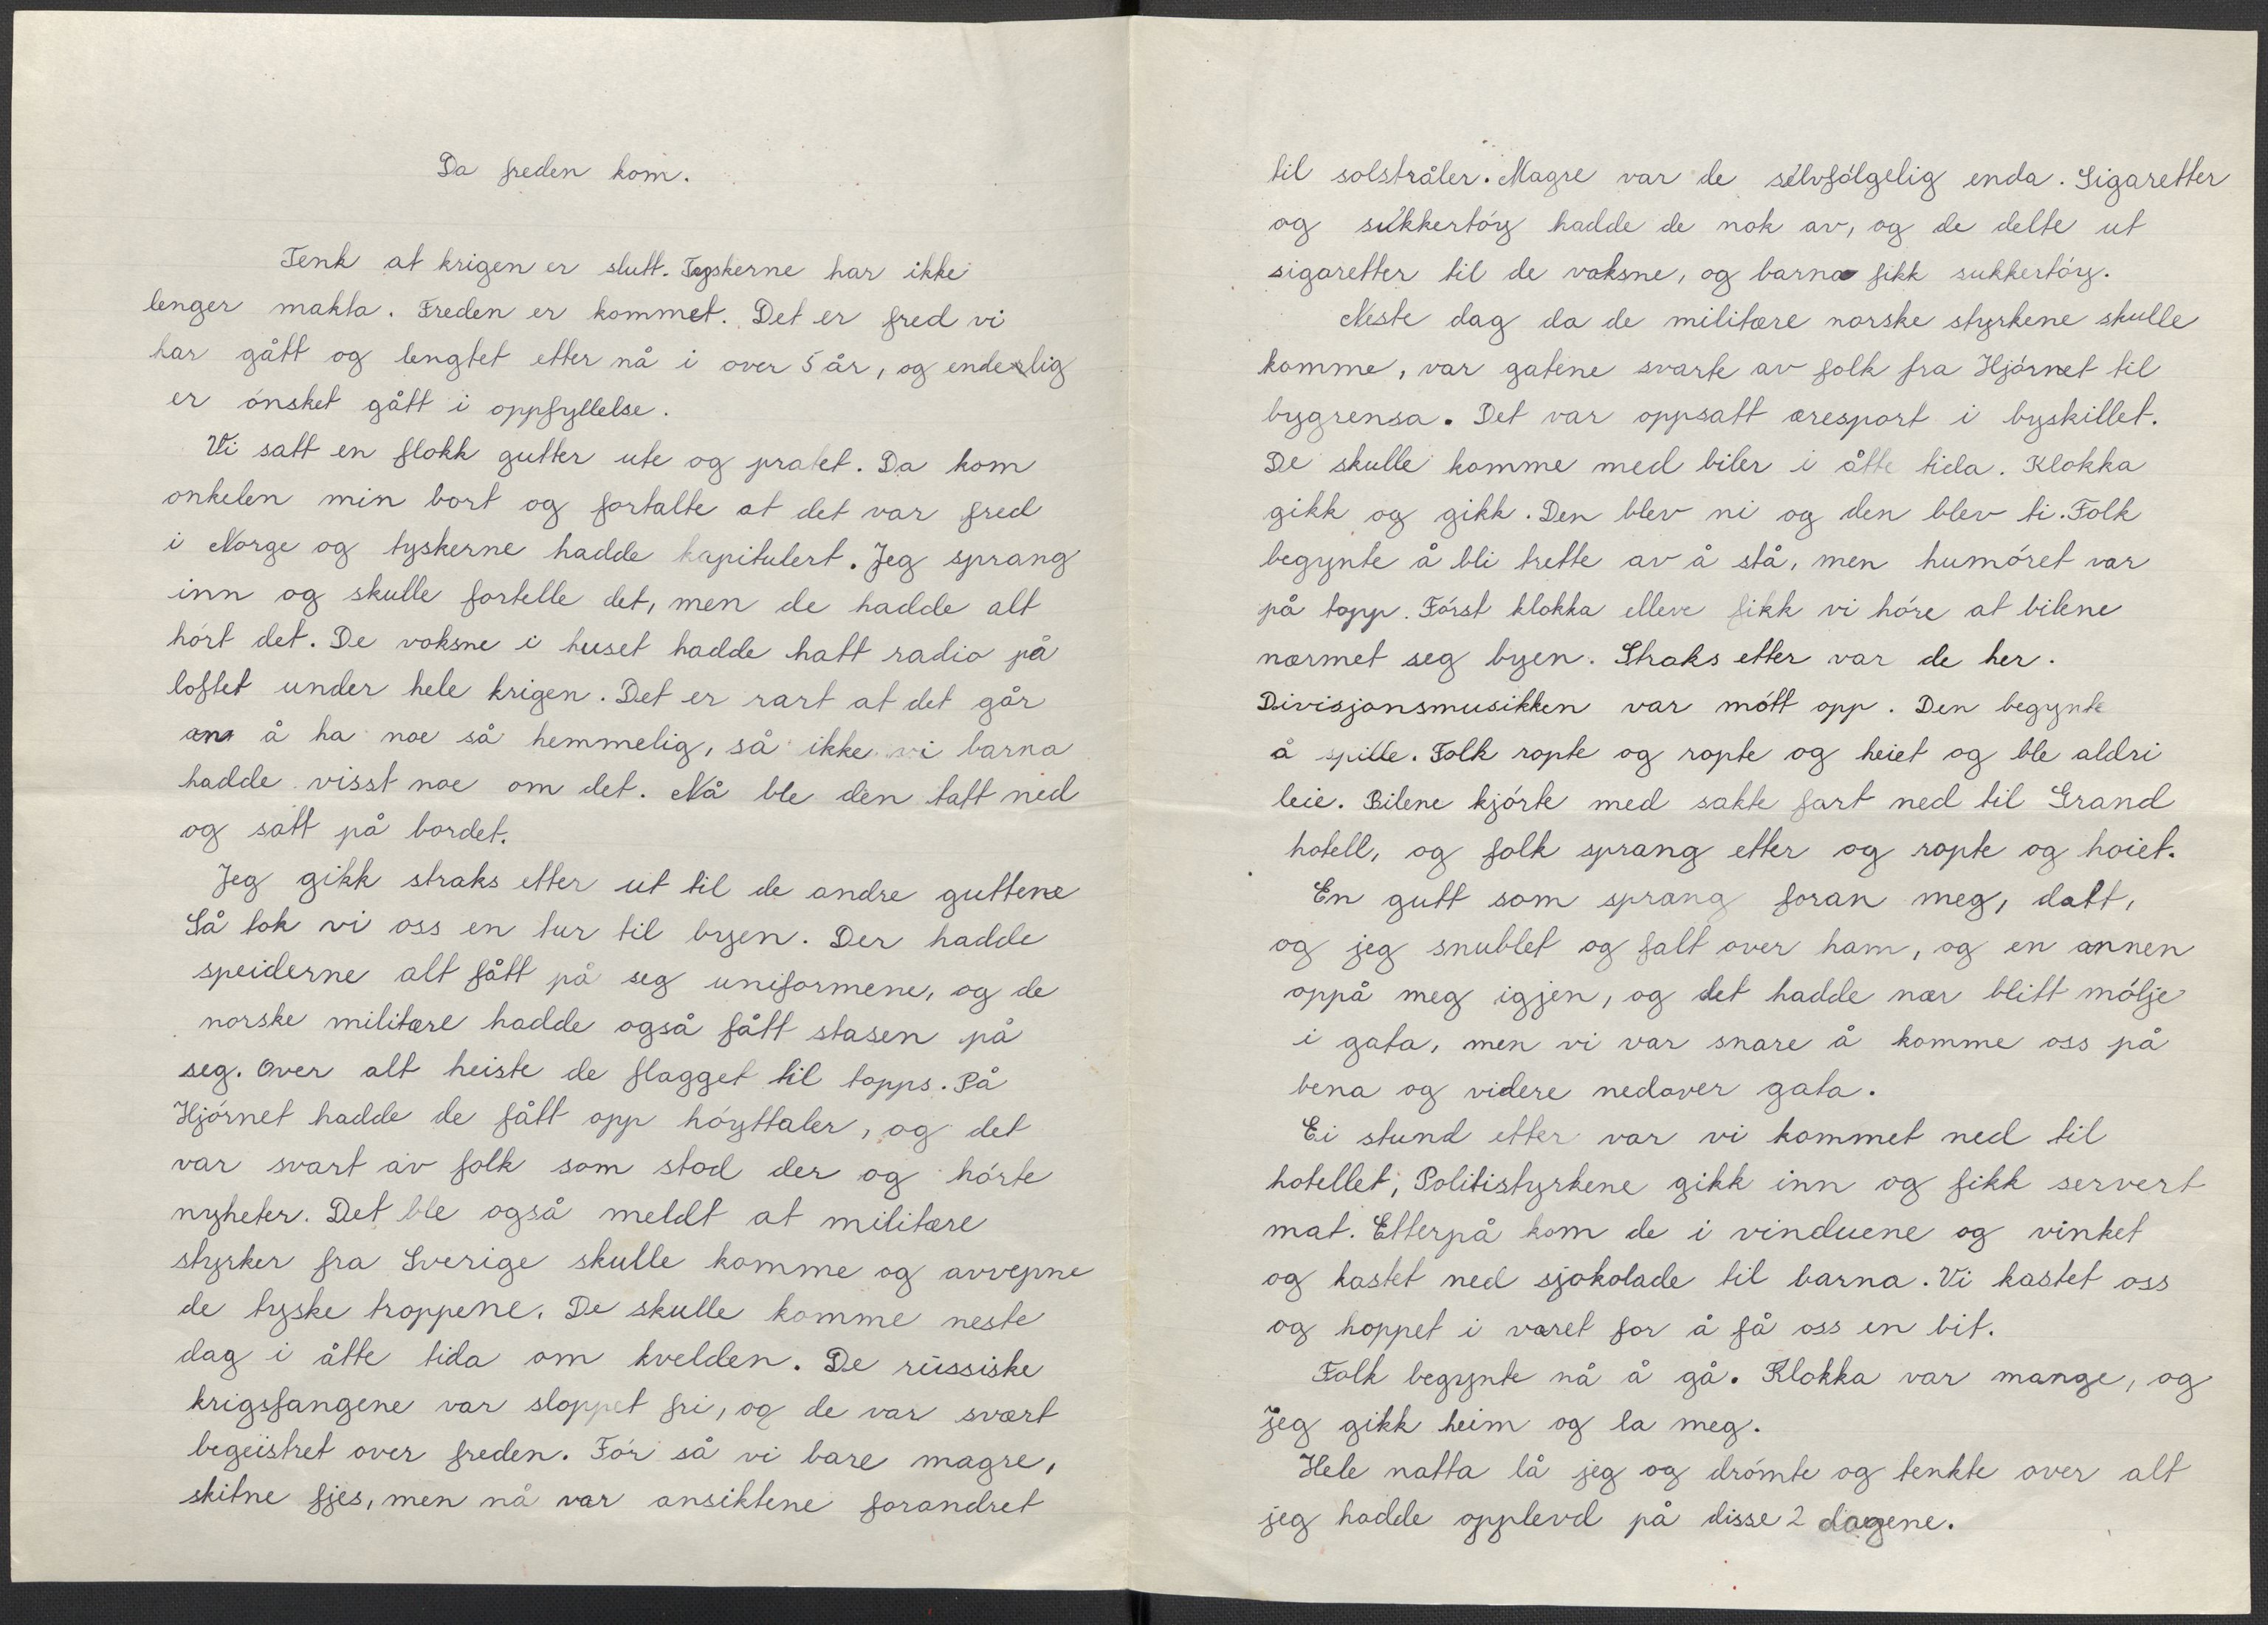 Da freden kom.
Tenk at krigen er slutt. Tyskerne har ikke
lenger makta. Freden er kommet. Det er fred vi
har gått og lengtet etter nå i over 5 år, og endelig
er ónsket gått i oppfyllelse.
Vi satt en flokk gutter ute og pratet. Da kom
onkelen min bort og fortalte at det var fred
i Norge og tyskerne hadde kapitulert. Jeg sprang
inn og skulle fortelle det, men de hadde alt
hórt det. De voksne i huset hadde hatt radio på
loftet under hele krigen. Det er rart at det går
an å ha noe så hemmelig, så ikke vi barna
hadde visst noe om det. Nå ble den tatt ned
og satt på bordet.
Jeg gikk straks etter ut til de andre guttene
Så tok vi oss en tur til byen. Der hadde
speiderne alt fått på seg uniformene, og de
norske militære hadde også fått stasen på
seg. Over alt heiste de flagget til topps. På
Hjórnet hadde de fått opp hóyttaler, og det
var svart av folk som stod der og hórte
nyheter. Det ble også meldt at militære
styrker fra Sverige skulle komme og avvepne
de tyske troppene. De skulle komme neste
dag i åtte tida om kvelden. De russiske
krigsfangene var sloppet fri, og de var svært
begeistret over freden. Fór så vi bare magre,
skitne fjes, men nå var ansiktene forandret
til solstråler. Magre var de selvfólgelig enda. Sigaretter
og sukkertóy hadde de nok av, og de delte ut
sigaretter til de voksne, og barna fikk sukkertóy.
Neste dag da de militære norske styrkene skulle
komme, var gatene svarte av folk fra Hjórnet til
bygrensa. Det var oppsatt æresport i byskillet.
De skulle komme med biler i åtte tida. Klokka
gikk og gikk. Den blev ni og den blev ti. Folk
begynte å bli trette av å stå, men humóret var
på topp. Fórst klokka elleve fikk vi hóre at bilene
nærmet seg byen. Straks etter var de her.
Divisjonsmusikken var mótt opp. Den begynte
å spille. Folk ropte og ropte og heiet og ble aldri
leie. Bilene kjórte med sakte fart ned til Grand
hotell, og folk sprang etter og ropte og hoiet.
En gutt som sprang foran meg, datt,
og jeg snublet og falt over ham, og en annen
oppå meg igjen, og det hadde nær blitt mólje
i gata, men vi var snare å komme oss på
bena og videre nedover gata.
Ei stund etter var vi kommet ned til
hotellet, Politistyrkene gikk inn og fikk servert
mat. Etterpå kom de i vinduene og vinket
og kastet ned sjokolade til barna. Vi kastet oss
og hoppet i været for å få oss en bit.
Folk begynte nå å gå. Klokka var mange, og
jeg gikk heim og la meg.
Hele natta lå jeg og drómte og tenkte over alt
jeg hadde opplevd på disse 2 dagene.